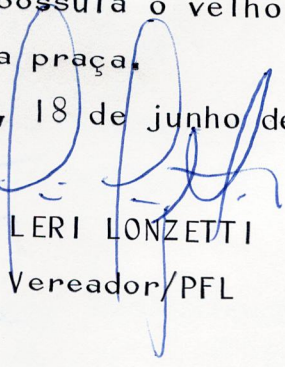 possuía o velho
a praça.
, 18 de junho de
LERI LONZETTI
Vereador/PFL